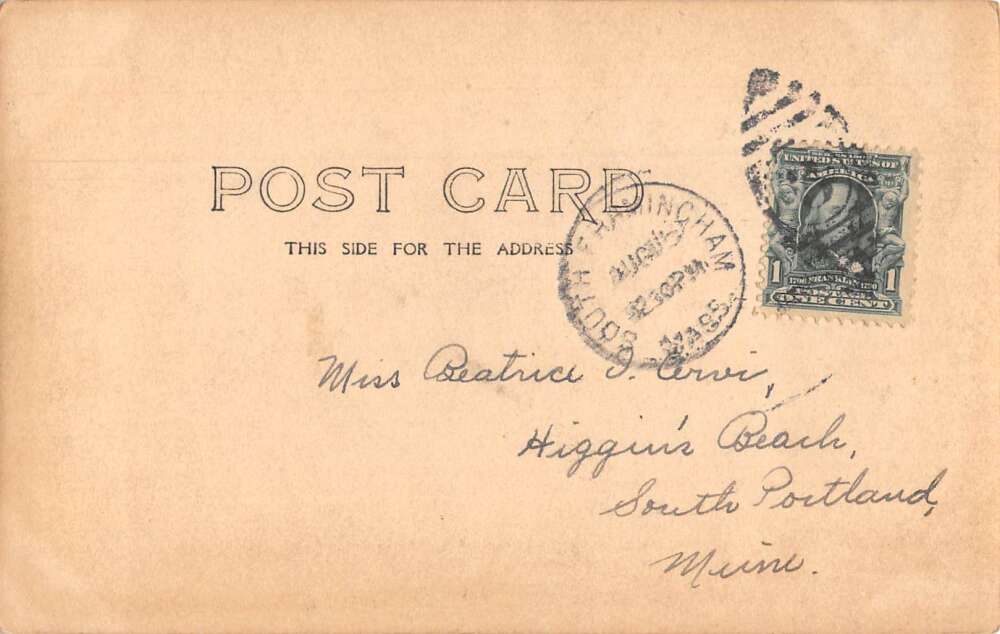 POST CARD
THIS SIDE FOR THE ADDRESS
SOUTH FRAMINGHAM
AUG
2 30 PM
MASS.
UNITED STATES OF
AMERICA
1 1706 FRANKLIN 1790 1
POSTAGE
ONE CENT
Miss Beatrice I. Cervi,
Higgin's Beach,
South Portland,
Maine.